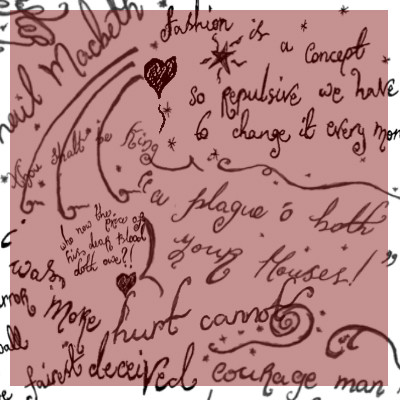 Fashion is
a concept
so repulsive we have
to change it every mon
hail Macbeth
You shalt be King
"a plague o both
your Houses!"
who now the price of
his dear blood
doth owe?!
was
more
hurt cannot
fairest deceived courage man